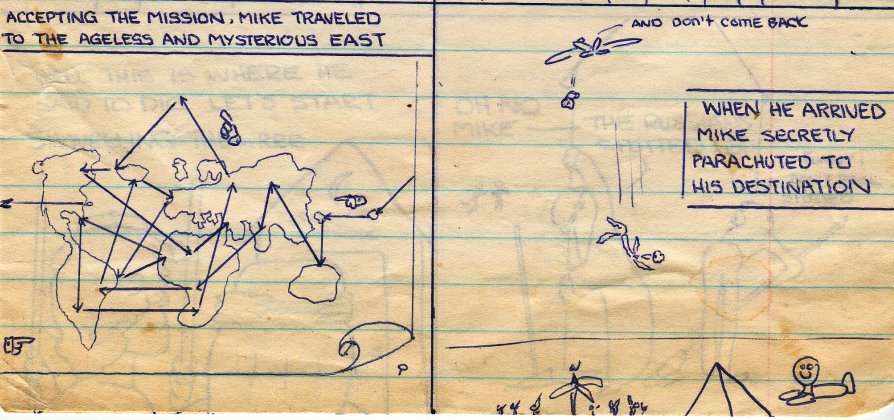 ACCEPTING THE MISSION, MIKE TRAVELED
TO THE AGELESS AND MYSTERIOUS EAST
AND DON'T COME BACK
WHEN HE ARRIVED
MIKE SECRETLY
PARACHUTED TO
HIS DESTINATION